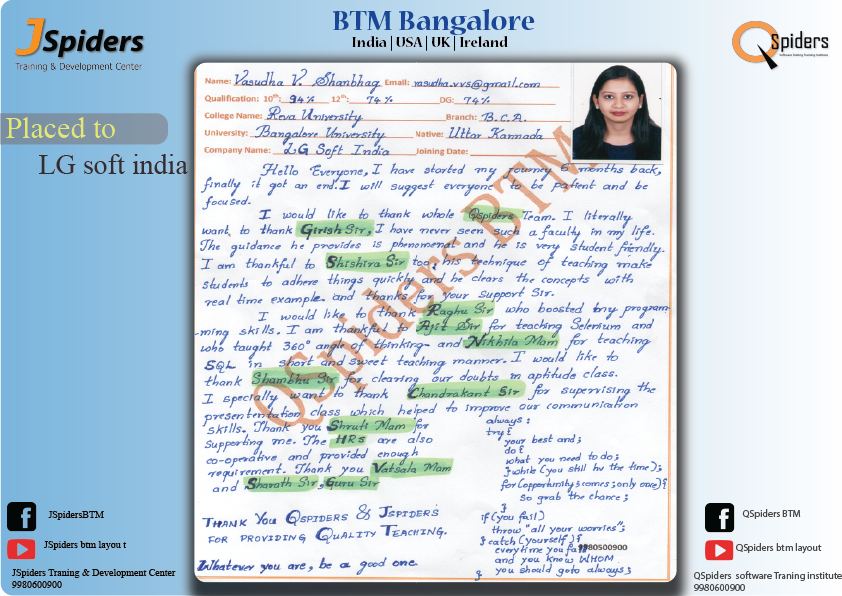 JSpiders
Training & Development Center
BTM Bangalore
India | USA | UK | Ireland
QSpiders
Software Testing Training Institute
Placed to
LG soft india
Name: Vasudha V. Shanbhag Email: vasudha.vvs@gmail.com
Qualification: 10th: 94% 12th: 74% DG: 74%
College Name: Reva University Branch: B.C.A.
University: Bangalore University Native: Uttar Kannada
Company Name: LG Soft India Joining Date:
Hello Everyone, I have started my journey 6 months back,
finally it got an end. I will suggest everyone to be patient and be
focused.
I would like to thank whole Qspiders Team. I literally
want to thank Girish Sir, I have never seen such a faculty in my life.
The guidance he provides is phenomenal and he is very student friendly.
I am thankful to Shishira Sir too, his technique of teaching make
students to adhere things quickly and he clears the concepts with
real time example. and thanks for your support Sir.
I would like to thank Raghu Sir who boosted my program-
ming skills. I am thankful to Ajit Sir for teaching Selenium and
who taught 360° angle of thinking. and Nikhila Mam for teaching
SQL in short and sweet teaching manner. I would like to
thank Shambhu Sir for clearing our doubts in aptitude class.
I specially want to thank Chandrakant Sir for supervising the
presentention class which helped to improve our communication
skills. Thank you Shruti Mam for
supporting me. The HRs are also
co-operative and provided enough
requirement. Thank you Vatsala Mam
and Sharath Sir, Guru Sir
always:
try{
your best and;
do{
what you need to do;
}while (you still be the time);
for(opportunity;comes;only one){
so grab the chance;
}
if(you fail)
throw "all your worries";
}catch(yourself){
everytime you fall
and you know WHOM
you should goto always;
}
9980500900
THANK YOU QSPIDERS & JSPIDERS
FOR PROVIDING QUALITY TEACHING.
Whatever you are, be a good one.
QSpiders BTM
JSpidersBTM
JSpiders btm layou t
JSpiders Traning & Development Center
9980600900
QSpiders BTM
QSpiders btm layout
QSpiders software Traning institute
9980600900